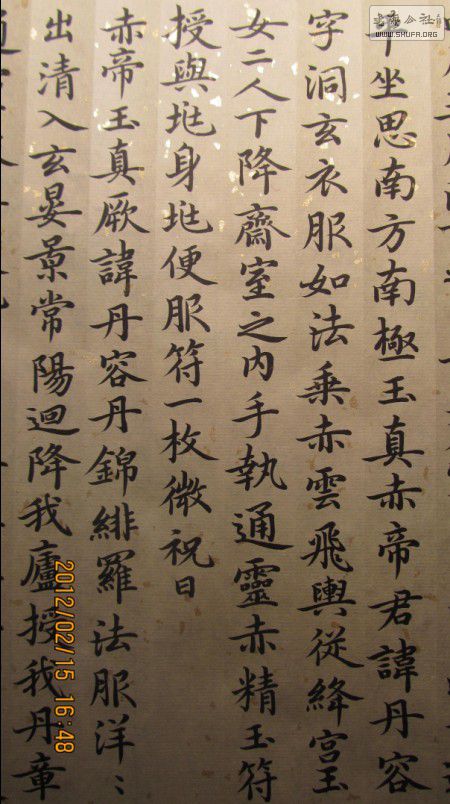 坐思南方南極玉真赤帝君諱丹容
字洞玄衣服如法乘赤雲飛輿從絳宮玉
女二人下降齋室之内手執通靈赤精玉符
授與垗身垗便服符一枚微祝曰
赤帝玉真厥諱丹容丹錦緋羅法服洋〻
出清入玄晏景常陽迴降我廬授我丹章
书法公社
WWW.SHUFA.ORG
2012/02/15 16:48